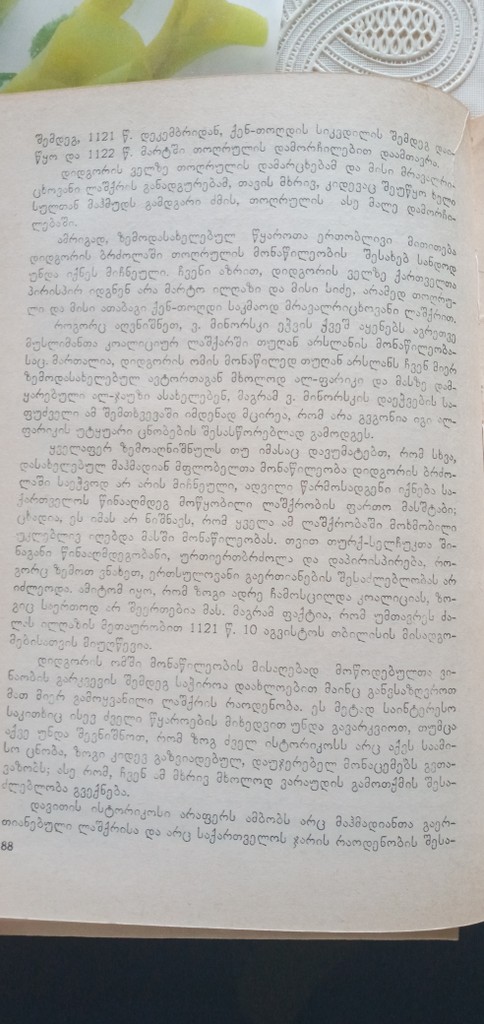 შემდეგ, 1121 წ. დეკემბრიდან, ქენ-თოღდის სიკვდილის შემდეგ დაი-
წყო და 1122 წ. მარტში თოღრულის დამორჩილებით დაამთავრა.
დიდგორის ველზე თოღრულის დამარცხებამ და მისი მრავალრი-
ცხოვანი ლაშქრის განადგურებამ, თავის მხრივ, კიდევაც შეუწყო ხელი
სულთან მაჰმუდს გამდგარი ძმის, თოღრულის ასე მალე დამორჩი-
ლებაში.
ამრიგად, ზემოდასახელებულ წყაროთა ერთობლივი მითითება
დიდგორის ბრძოლაში თოღრულის მონაწილეობის შესახებ სანდოდ
უნდა იქნეს მიჩნეული. ჩვენი აზრით, დიდგორის ველზე ქართველთა
პირისპირ იდგნენ არა მარტო ილღაზი და მისი სიძე, არამედ თოღრუ-
ლი და მისი ათაბაგი ქენ-თოღდი საკმაოდ მრავალრიცხოვანი ლაშქრით.
როგორც აღვნიშნეთ, ვ. მინორსკი ეჭვის ქვეშ აყენებს აგრეთვე
მუსლიმანთა კოალიციურ ლაშქარში თუღან არსლანის მონაწილეობა-
საც. მართალია, დიდგორის ომის მონაწილედ თუღან არსლანს ჩვენ მიერ
ზემოდასახელებულ ავტორთაგან მხოლოდ ალ-ფარიკი და მასზე დამ-
ყარებული ალ-ჯაუზი ასახელებენ, მაგრამ ვ. მინორსკის დაეჭვების სა-
ფუძველი ამ შემთხვევაში იმდენად მცირეა, რომ არა გვგონია იგი ალ-
ფარიკის უტყუარი ცნობების შესასწორებლად გამოდგეს.
ყველაფერ ზემოაღნიშნულს თუ იმასაც დავუმატებთ, რომ სხვა,
დასახელებულ მაჰმადიან მფლობელთა მონაწილეობა დიდგორის ბრძო-
ლაში საეჭვოდ არ არის მიჩნეული, ადვილი წარმოსადგენი იქნება სა-
ქართველოს წინააღმდეგ მოწყობილი ლაშქრობის ფართო მასშტაბი;
ცხადია, ეს იმას არ ნიშნავს, რომ ყველა ამ ლაშქრობაში მოხმობილი
უკლებლივ იღებდა მასში მონაწილეობას. თვით თურქ-სელჩუკთა ში-
ნაგანი წინააღმდეგობანი, ურთიერთბრძოლა და დაპირისპირება, რო-
გორც ზემოთ ვნახეთ, ერთსულოვანი გაერთიანების შესაძლებლობას არ
იძლეოდა. ამიტომ იყო, რომ ზოგი ადრე ჩამოსცილდა კოალიციას, ზო-
გიც საერთოდ არ შეერთებია მას. მაგრამ ფაქტია, რომ უმთავრეს ძა-
ლას ილღაზის მეთაურობით 1121 წ. 10 აგვისტოს თბილისის მისადგო-
მებისათვის მიუღწევია.
დიდგორის ომში მონაწილეობის მისაღებად მოწოდებულთა ვი-
ნაობის გარკვევის შემდეგ საჭიროა დაახლოებით მაინც განვსაზღვროთ
მათ მიერ გამოყვანილი ლაშქრის რაოდენობა. ეს მეტად საინტერესო
საკითხიც ისევ ძველი წყაროების მიხედვით უნდა გავარკვიოთ, თუმცა
აქვე უნდა შევნიშნოთ, რომ ზოგ ძველ ისტორიკოსს არც აქვს საამი-
სო ცნობა, ზოგი კიდევ გაზვიადებულ, დაუჯერებელ მონაცემებს გვთა-
ვაზობს; ასე რომ, ჩვენ ამ მხრივ მხოლოდ ვარაუდის გამოთქმის შესა-
ძლებლობა გვექნება.
დავითის ისტორიკოსი არაფერს ამბობს არც მაჰმადიანთა გაერ-
თიანებული ლაშქრისა და არც საქართველოს ჯარის რაოდენობის შესა-
88